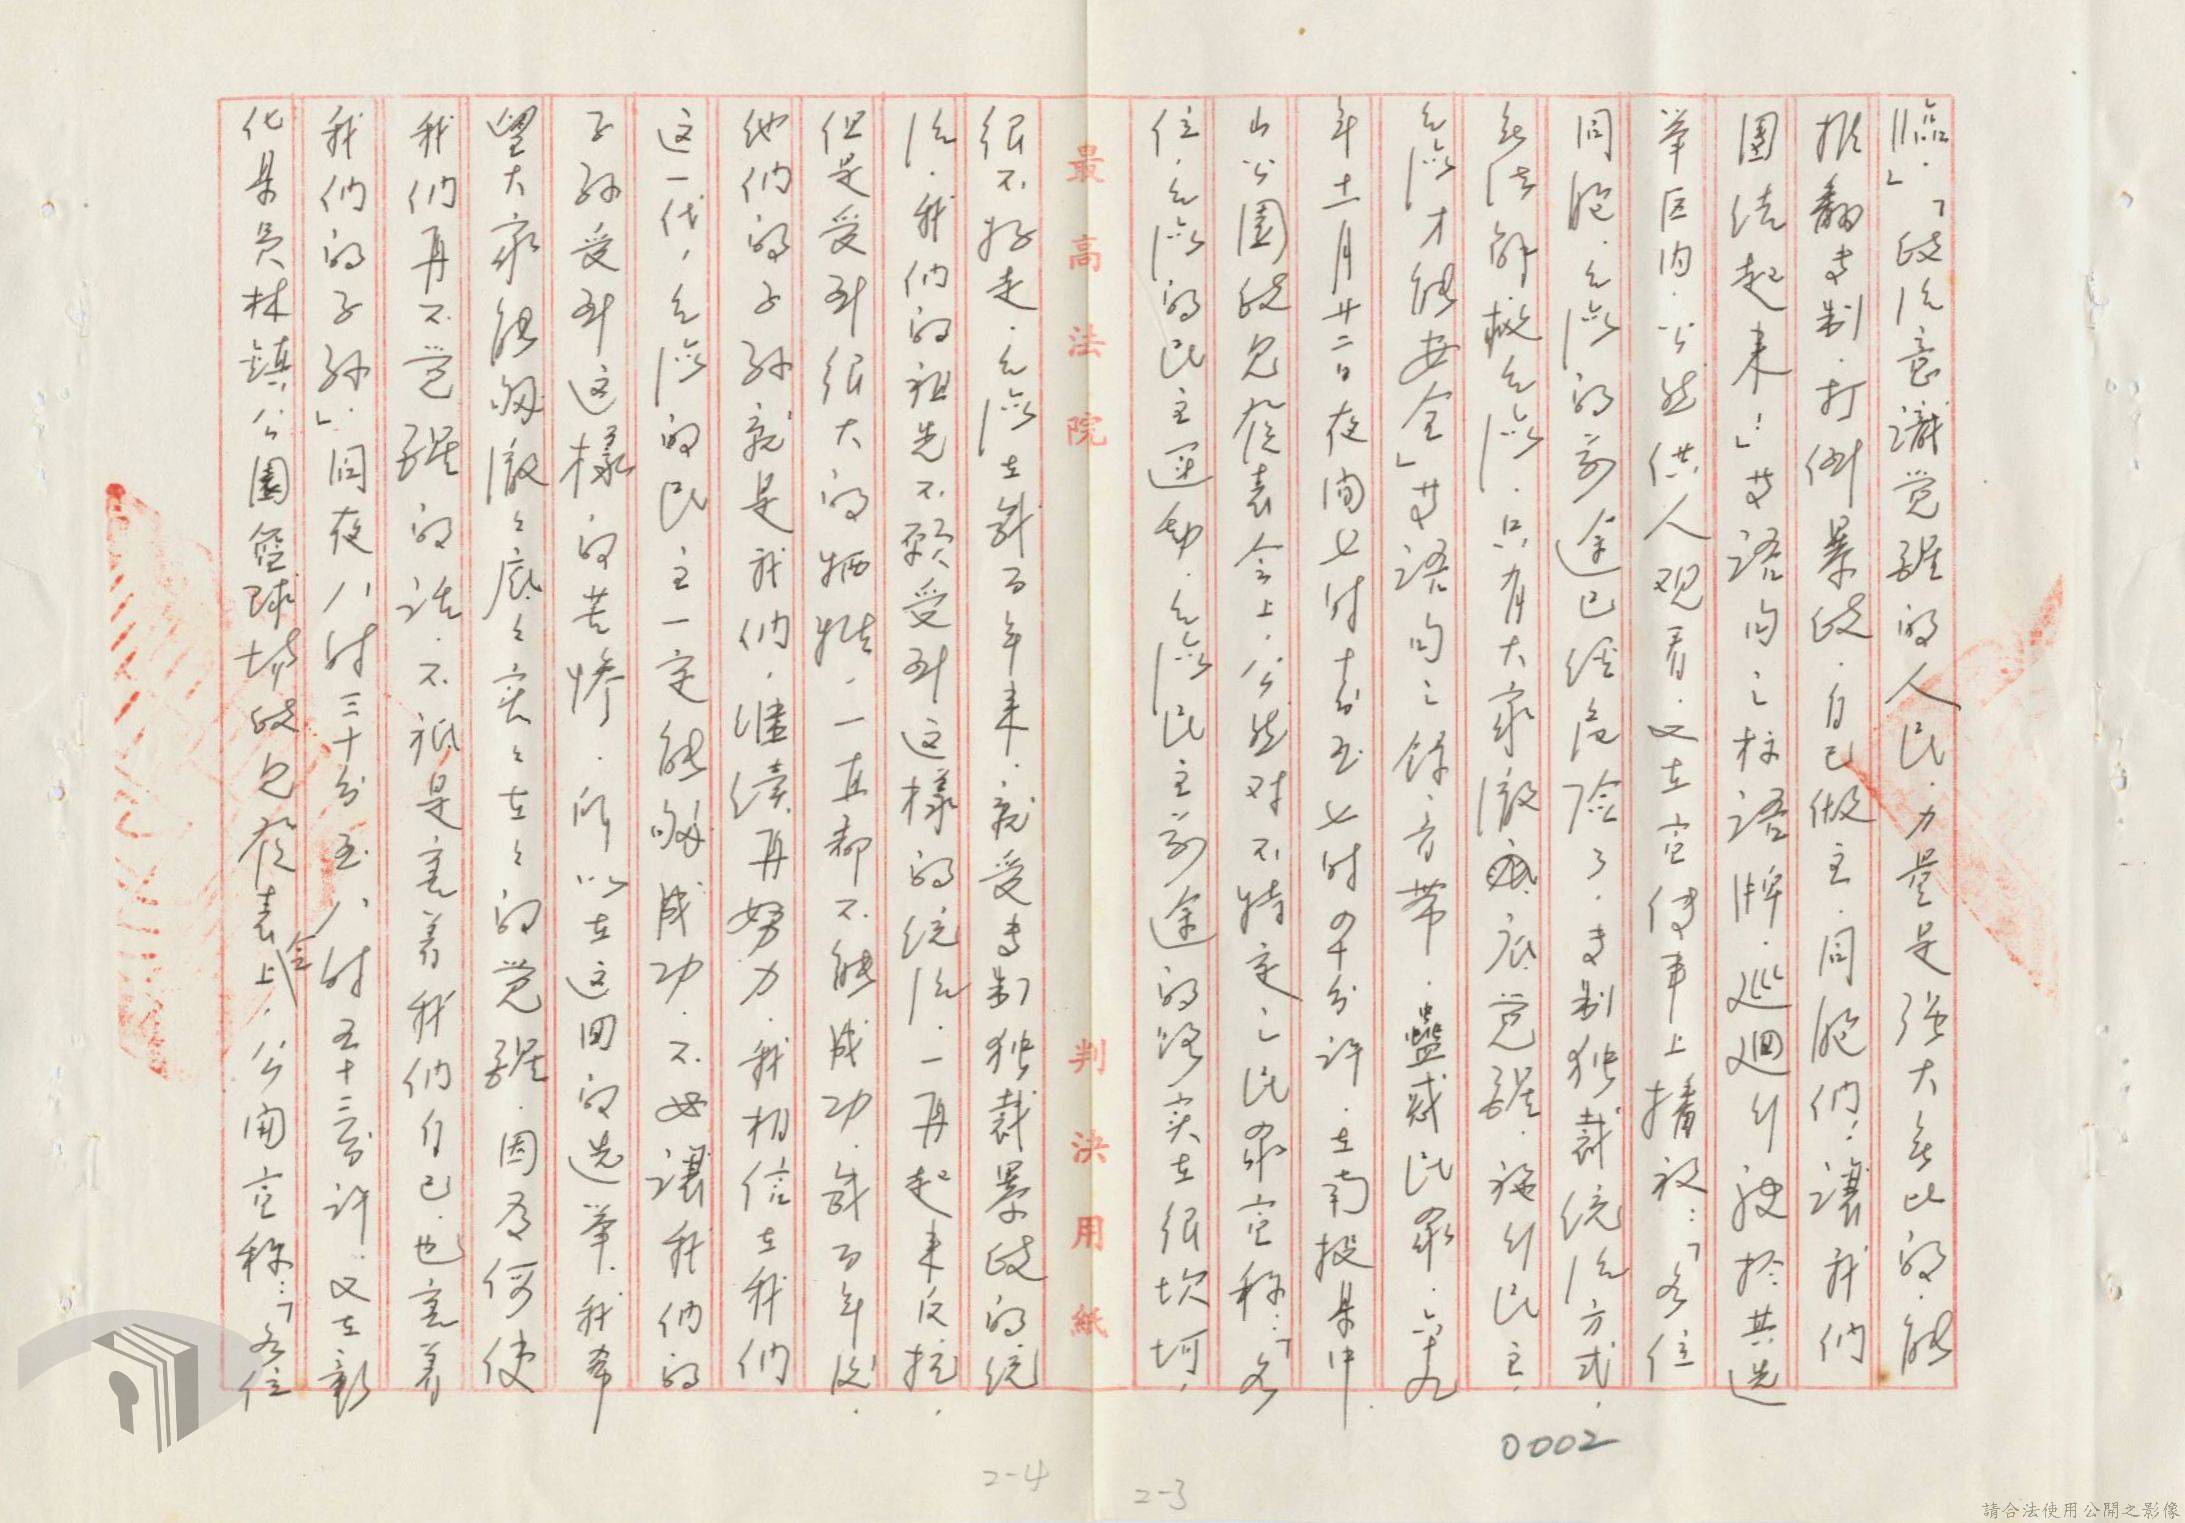 臨。」「政治意識覺醒的人民,力量是強大無比的,能
推翻専制,打倒暴政,自己做主,同胞們!讓我們
團結起來!」等語句之標語牌,巡迴行駛於其選
舉区内,公然供人观看,又在宣傳車上播放:「各位
同胞,台湾的前途已經危险了,専制独裁統治方式,
無法解救台湾,只有大家徹底覚醒,施行民主,
台湾才能安全」等語句之錄音帶,蠱惑民眾,六十九
年十一月廿二日夜間七时十分至七时四十分许,在南投县中
山公園政見發表会上,公然对不特定之民眾宣称:「各
位,台湾的民主運動,台湾民主前途的路实在很坎坷,
最高法院 判決用紙
很不好走,台湾在幾百年来,就受専制独裁暴政的統
治,我們的祖先不願受到這樣的統治,一再起来反抗,
但是受到很大的牺牲,一直都不能成功,幾百年後,
他們的子孙就是我們,继续再努力,我相信在我們
這一代,台湾的民主一定能夠成功,不要讓我們的
子孙受到這樣的苦惨,所以在這囬的选举,我希
望大家能夠徹々底々实々在々的覚醒,因為假使
我們再不覚醒的話,不祇是害着我們自己,也害着
我們的子孙」。同夜八时三十分至八时五十二分许,又在彰
化县员林鎮公園籃球場政見發表会上,公開宣称:「各位
0002
2-4
2-3
請合法使用公開之影像